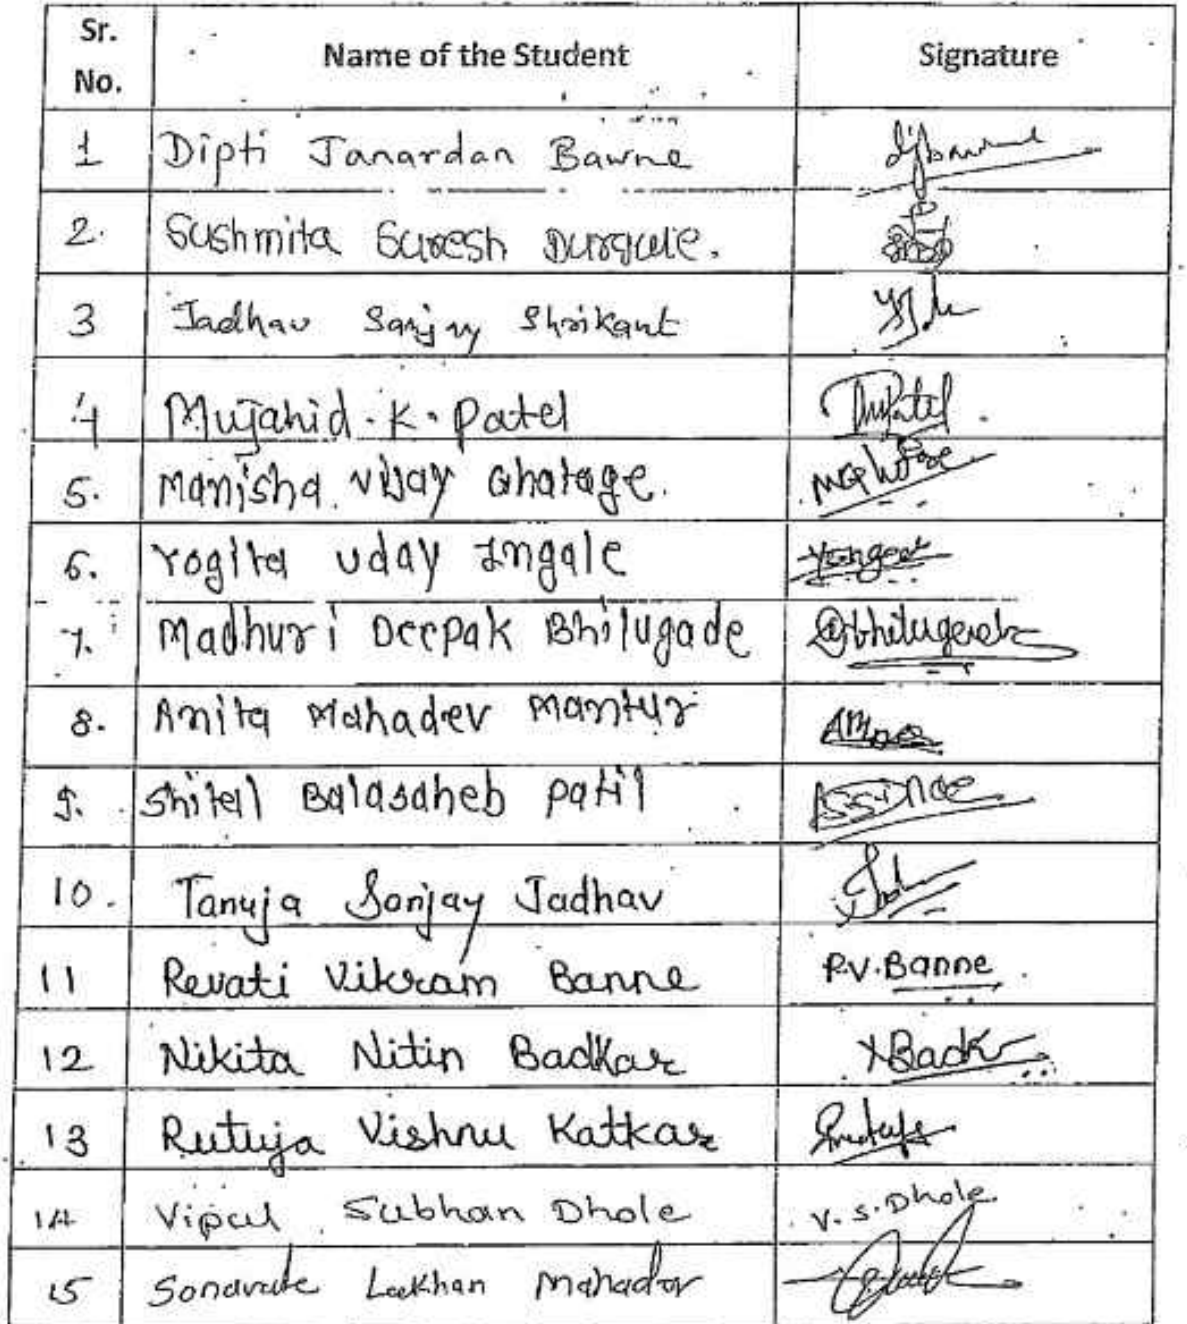 Sr. No. Name of the Student Signature
1 Dipti Janardan Bawne
2. Sushmita Suresh Durgule.
3 Jadhav Sanjay Shrikant
4 Mujahid. K. Patel
5. Manisha Vijay Ghatage.
6. Yogita Uday Ingale
7. Madhuri Deepak Bhilugade
8. Anita Mahadev Mantur
9. Shital Balasaheb Patil
10. Tanuja Sanjay Jadhav
11 Revati Vikram Banne P.V.Banne
12 Nikita Nitin Badkar
13 Rutuja Vishnu Katkar
14 Vipul Subhan Dhole V.S.Dhole
15 Mahadev